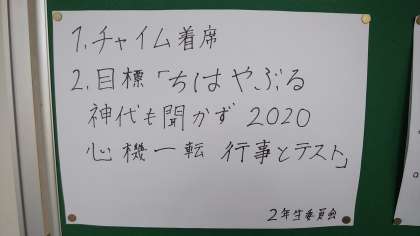 1. チャイム着席
2. 目標「ちはやぶる
神代も聞かず 2020
心機一転 行事とテスト」
2年生委員会